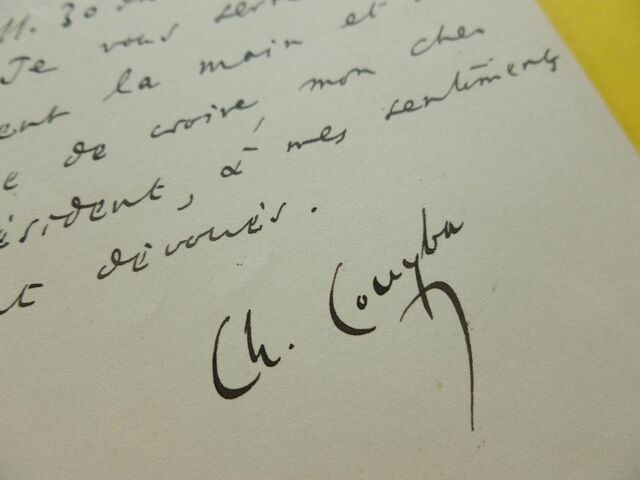 11. 30 du
Je vous serre
ent la main et
e de croire, mon cher
ésident, à mes sentiments
t dévoués.
Ch. Couyba